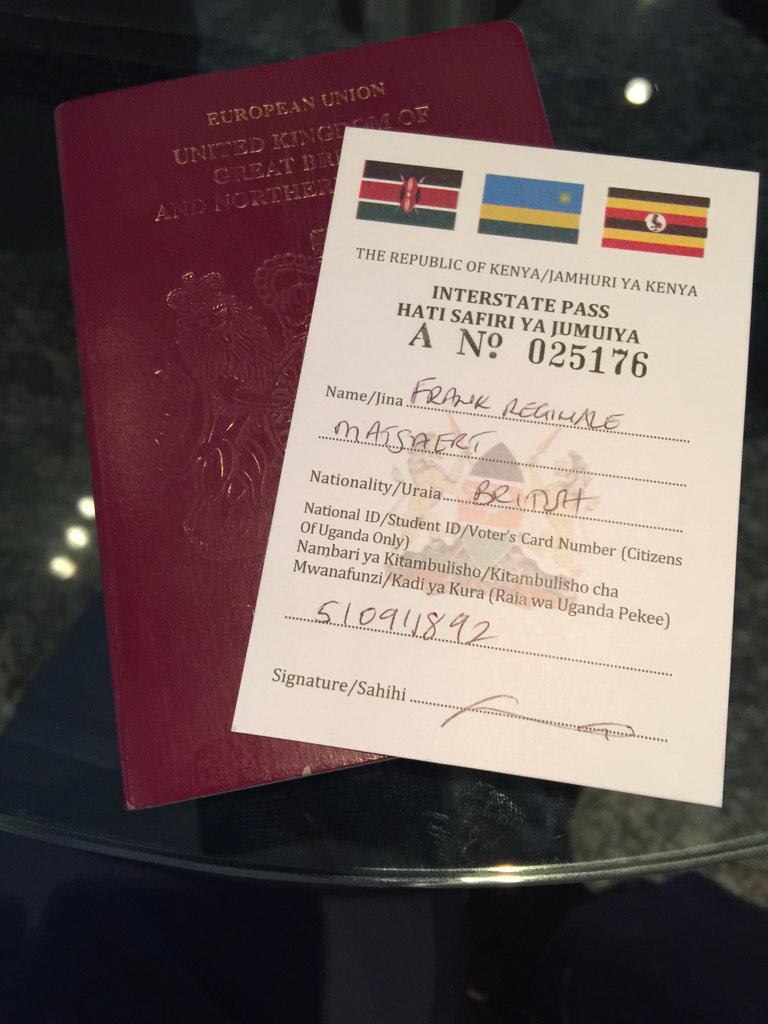 EUROPEAN UNION
UNITED KINGDOM OF
GREAT BRI
AND NORTHER
THE REPUBLIC OF KENYA/JAMHURI YA KENYA
INTERSTATE PASS
HATI SAFIRI YA JUMUIYA
A Nº 025176
Name/Jina FRANK REGINALE
MATSAERT
Nationality/Uraia BRITISH
National ID/Student ID/Voter's Card Number (Citizens
Of Uganda Only)
Nambari ya Kitambulisho/Kitambulisho cha
Mwanafunzi/Kadi ya Kura (Raia wa Uganda Pekee)
510911892
Signature/Sahihi